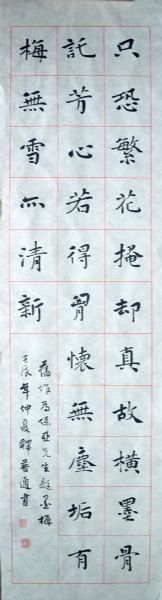 只恐繁花掩却真故橫墨骨
託芳心若得胷懷無塵垢有
梅無雪亦清新
舊作為保亞先生題墨梅
壬辰年仲夏釋普適書